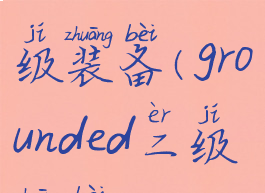 jí zhuāng bèi
级装备(gro
èr jí
unded二级